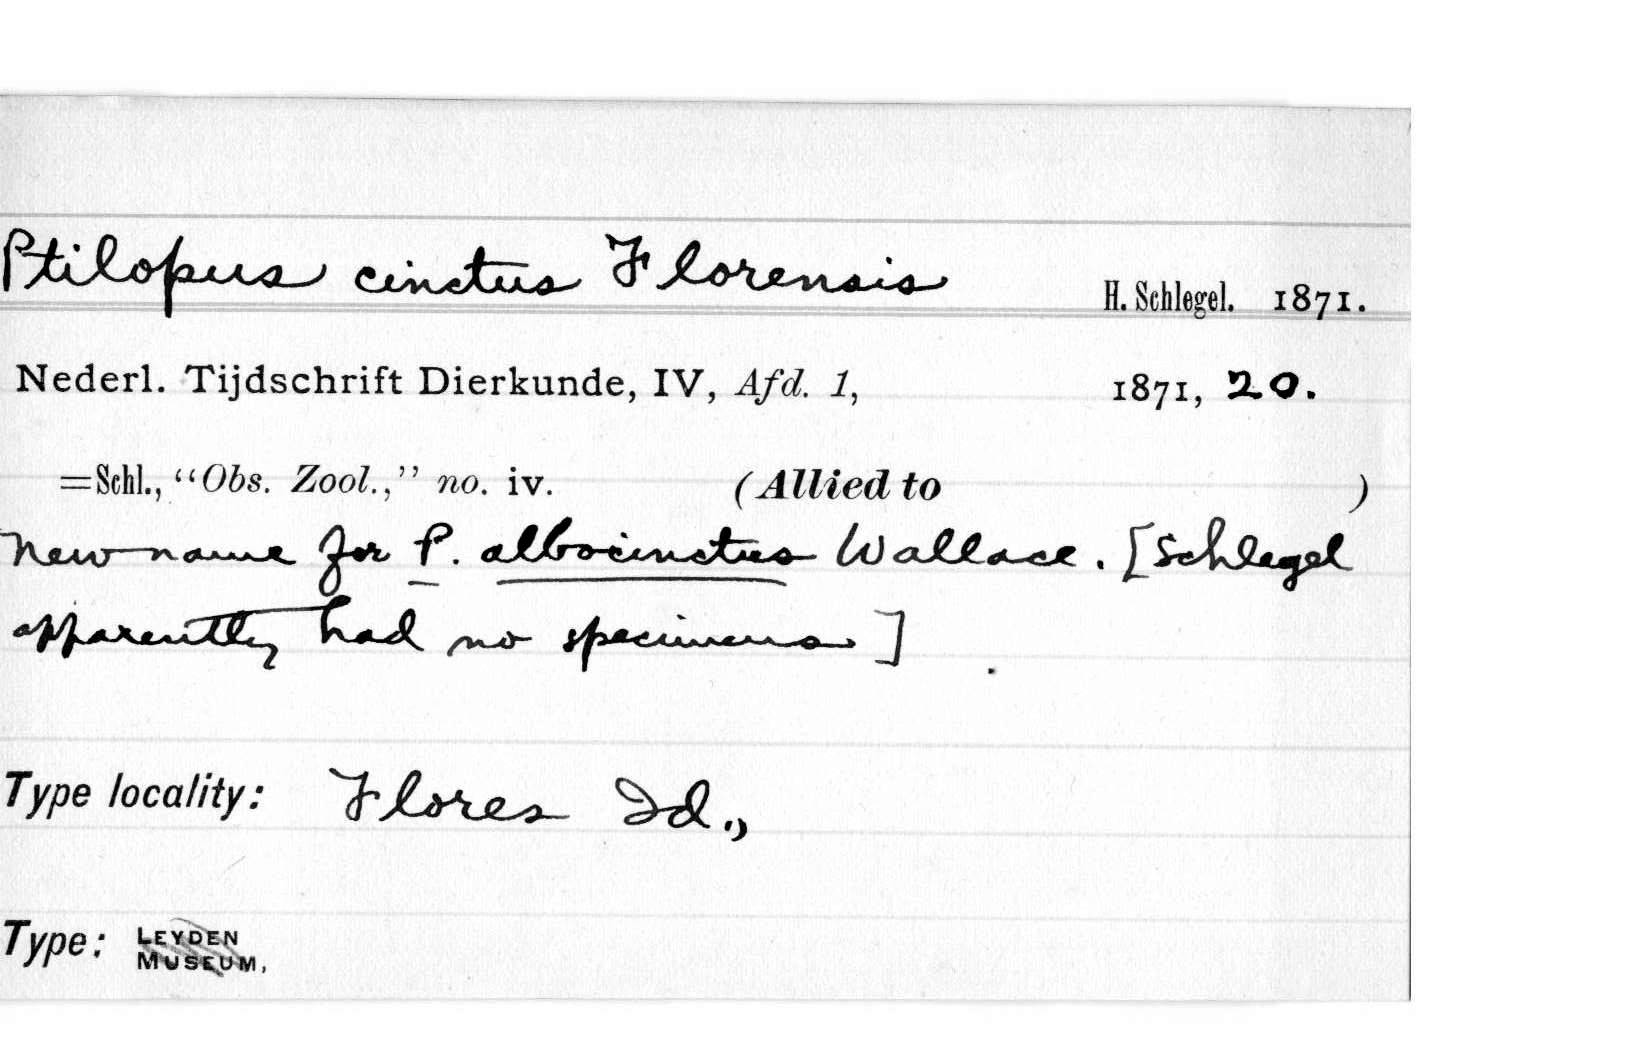 Ptilopus cinctus Florensis H. Schlegel. 1871.
Nederl. Tijdschrift Dierkunde, IV, Afd. 1, 1871, 20.
=Schl., “Obs. Zool.,” no. iv. (Allied to )
New name for P. albocinctus Wallace. [Schlegel
apparently had no specimens]
Type locality: Flores Id.,
Type: LEYDEN
MUSEUM,